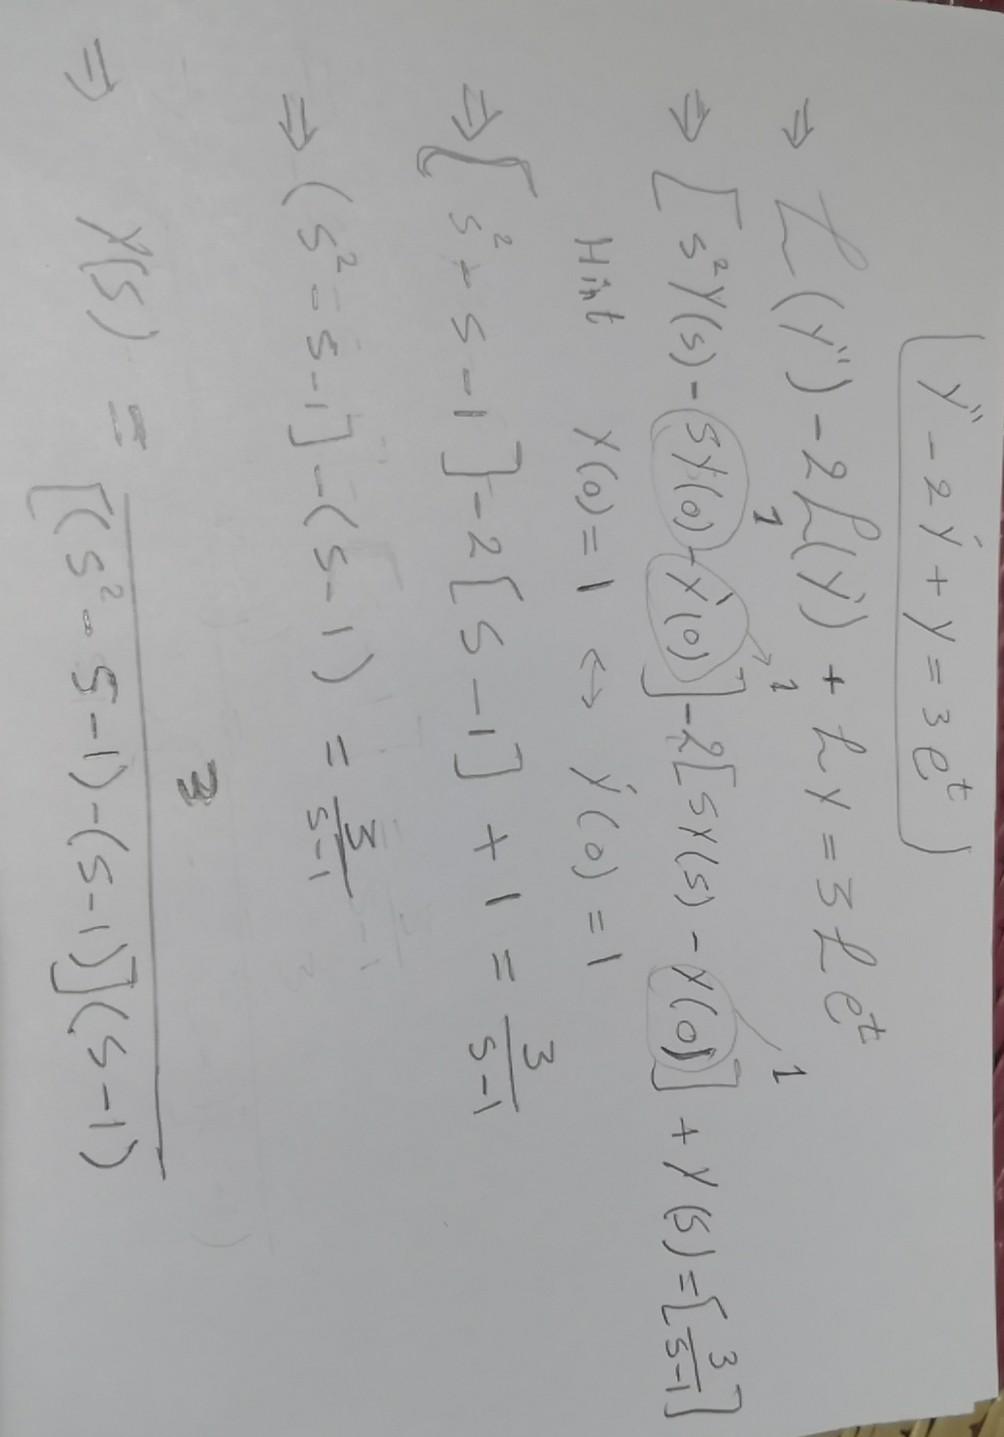 y'' - 2y' + y = 3e^t
⇒ ℒ(y'') - 2ℒ(y') + ℒy = 3ℒe^t
⇒ [s²Y(s) - sY(0) - Y'(0)] - 2[sY(s) - Y(0)] + Y(s) = [3/(s-1)]
1 1 1
Hint Y(0) = 1 ↔ Y'(0) = 1
⇒ [s² - s - 1] - 2[s - 1] + 1 = 3/(s-1)
⇒ (s² - s - 1] - (s - 1) = 3/(s-1)
⇒ Y(s) = 3/[(s² - s - 1) - (s - 1)](s - 1)